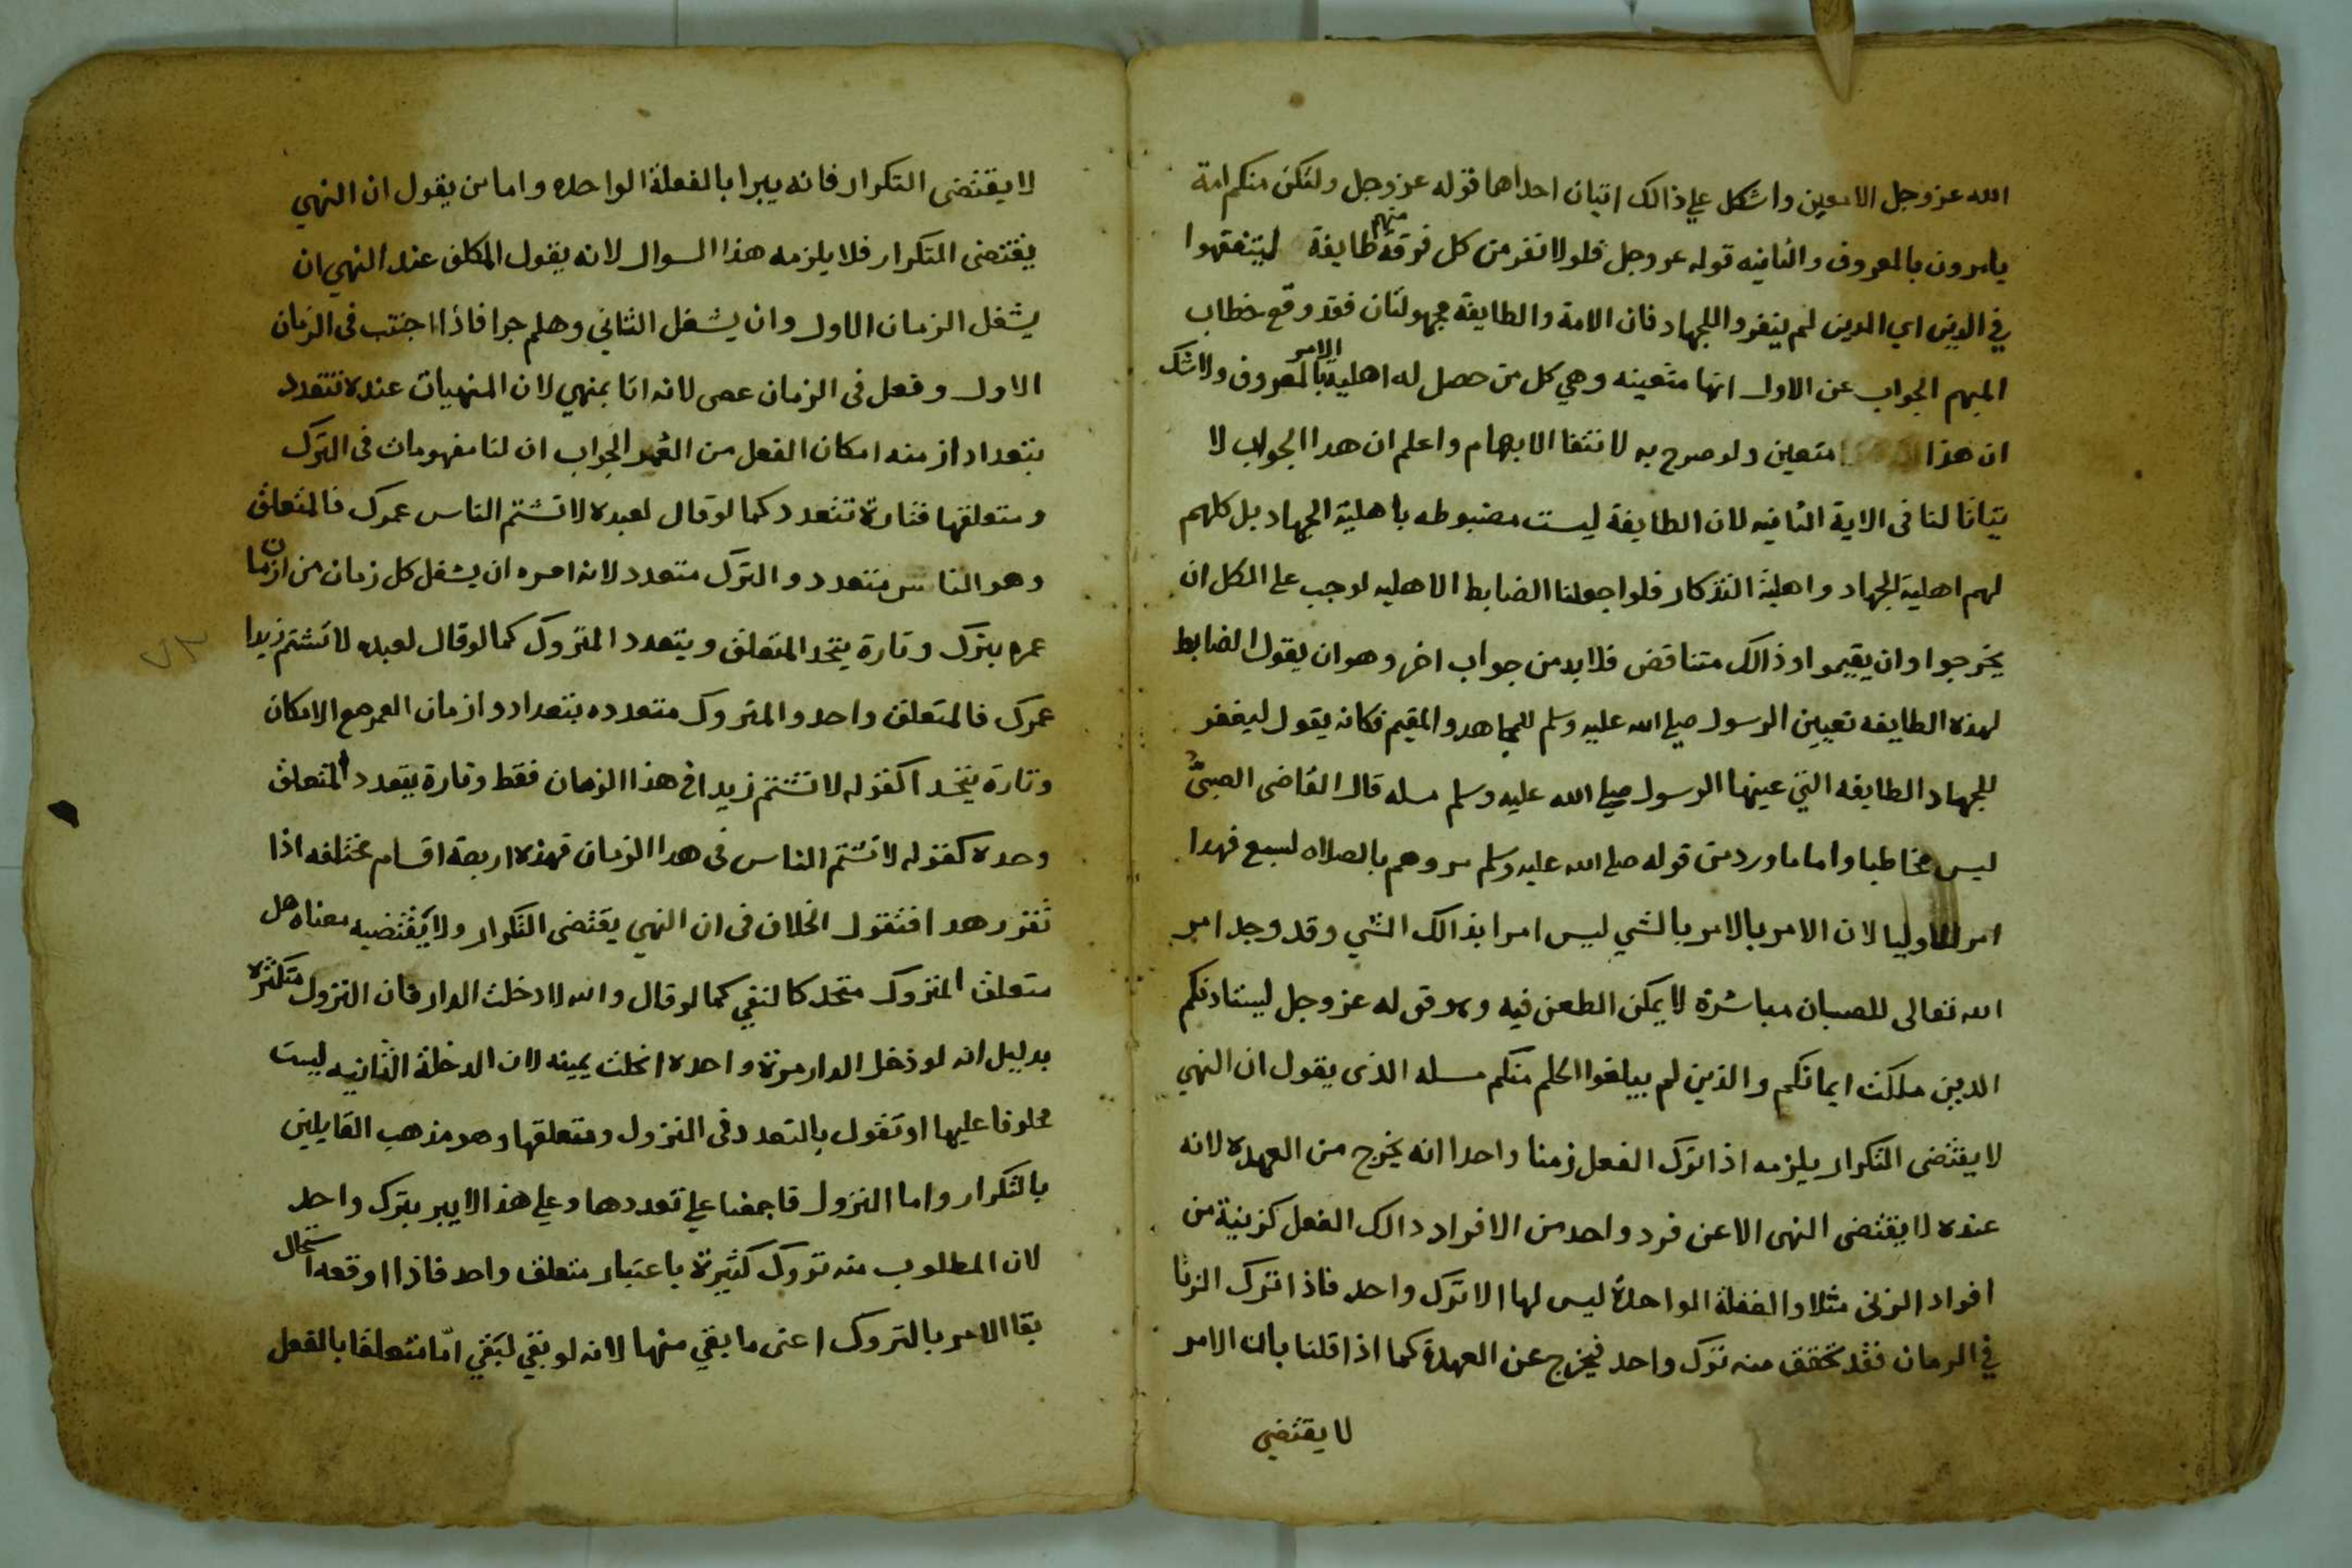 الله عز وجل الامعين واشكل علي ذالك اتيان احداهما قوله عز وجل ولتكن منكم امة
يامرون بالمعروف والثانيه قوله عز وجل فلولا نفر من كل فرقة منهم طايفة ليتفقهوا
في الدين اي الدين لم ينفروا للجهاد فان الامة والطايفة مجهولتان فقد وقع خطاب
المبهم الجواب عن الاول انها متعينه وهي كل من حصل له اهلية الامر بالمعروف ولا شك
ان هذا متعين ولو صرح به لانتفا الابهام واعلم ان هذا الجواب لا
يتاتا لنا في الاية الثانيه لان الطايفة ليست مضبوطه باهلية الجهاد بل كلهم
لهم اهلية الجهاد واهلية التذكار فلوا جعلنا الضابط الاهليه لوجب على الكل ان
يخرجوا وان يقيموا وذالك متناقض فلابد من جواب اخر وهو ان يقول الضابط
لهذه الطايفه تعيين الرسول صلى الله عليه وسلم للمجاهد والمقيم فكانه يقول ليغفر
للجهاد الطايفه التي عينها الرسول صلى الله عليه وسلم مسله قال القاضي الصبي
ليس مخاطبا واما ما ورد من قوله صلى الله عليه وسلم مروهم بالصلاه لسبع فهذا
امر للاوليا لان الامر بالامر بالشي ليس امرا بذالك الشي وقد وجد امر
الله تعالى للصبيان مباشرة لا يمكن الطعن فيه وهو قوله عز وجل ليستاذنكم
الدين ملكت ايمانكم والذين لم يبلغوا الحلم منكم مسله الذى يقول ان النهي
لا يقتضى التكرار يلزمه اذا ترك الفعل زمنا واحدا انه يخرج من العهده لانه
عنده لا يقتضى النهى الا عن فرد واحد من الافراد دالك الفعل كزنية من
افراد الزنى مثلا والفعلة الواحدة ليس لها الا ترك واحد فاذا ترك الزنا
في الزمان فقد تحقق منه ترك واحد فيخرج عن العهدة كما اذا قلنا بان الامر
لا يقتضي
لا يقتضى التكرار فانه يبرا بالفعلة الواحده واما من يقول ان النهي
يقتضى التكرار فلا يلزمه هذا السوال لانه يقول المكلف عند النهي ان
يشغل الزمان الاول وان يشغل الثاني وهلم جرا فاذا اجتنب في الزمان
الاول وفعل في الزمان عصى لانه اتا بمنهي لان المنهيات عنده تتعدد
بتعداد ازمنه امكان الفعل من العمر الجواب ان لنا مفهومات في الترك
ومتعلقها فتارة تتعدد كما لو قال لعبده لا تشتم الناس عمرك فالمتعلق
وهو الناس متعدد والترك متعدد لانه امره ان يشغل كل زمان من ازمان
عمره بترك وتارة يتحد المتعلق ويتعدد المتروك كما لو قال لعبده لا تشتم زيدا
عمرك فالمتعلق واحد والمتروك متعدده بتعداد وازمان العمر مع الامكان
وتارة يتحدا كقوله لا تشتم زيدا في هذا الزمان فقط وتارة يتعدد المتعلق
وحده كقوله لا تشتم الناس في هدا الزمان فهذه اربعة اقسام مختلفه اذا
تقرر هدا فنقول الخلاف فى ان النهي يقتضى التكرار ولا يقتضيه معناه هل
متعلق المتروك متحد كالنفي كما لو قال والله لا دخلت الدار فان التزول متكثره
بدليل انه لو دخل الدار مرة واحده انحلت يمينه لان الدخلة الثانيه ليست
محلوفا عليها او تقول بالتعدد في التزول ومتعلقها وهو مذهب القايلين
بالتكرار واما التزول فاجمعنا علي تعددها وعلي هذا لا يبر بترك واحد
لان المطلوب منه تروك كثيرة باعتبار متعلق واحد فاذا اوقعه استحال
بقا الامر بالتروك اعنى ما بقي منها لانه لو بقي لبقي اما متعلقا بالفعل